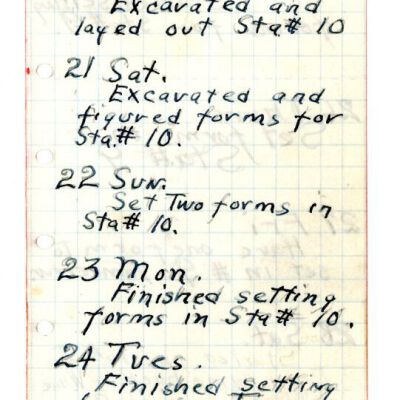 Excavated and
layed out Sta# 10
21 Sat.
Excavated and
figured forms for
Sta.# 10.
22 Sun.
Set Two forms in
Sta# 10.
23 Mon.
Finished setting
forms in Sta# 10.
24 Tues.
Finished setting